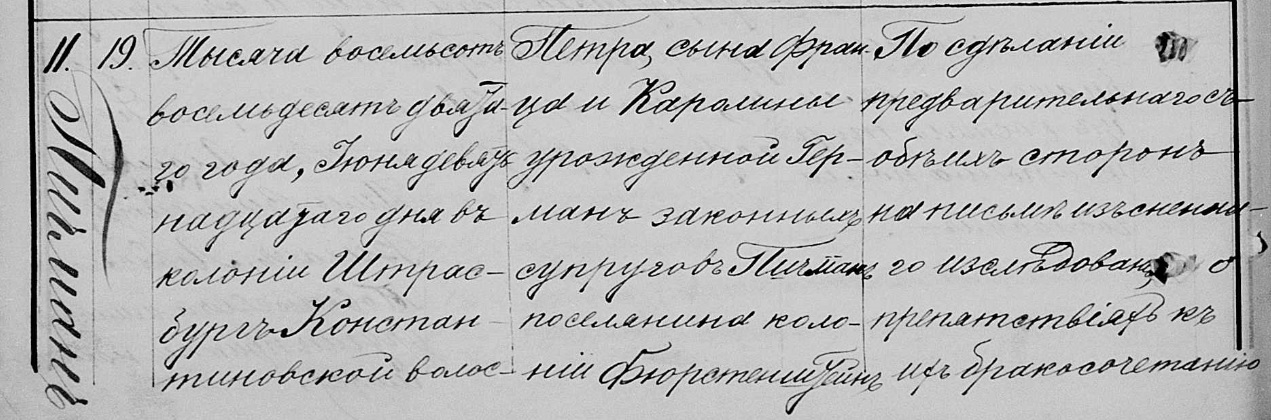 11.
Пичманъ
19.
Тысяча восемьсотъ
восемьдесятъ двята-
го года, Іюня девять
надцатаго дня въ
колоніи Штрас-
бургъ Констан-
тиновской волос-
Петра, сына Фран-
ца и Каролины
урожденной Гер-
манъ законныхъ
супруговъ Пичманъ
поселянина коло-
ніи Фюрстенштейнъ
По сдѣланіи
предварительнаго съ
обѣихъ сторонъ
на письмѣ изъсненна-
го изслѣдован о
препятствіяхъ къ
ихъ бракосочетанію